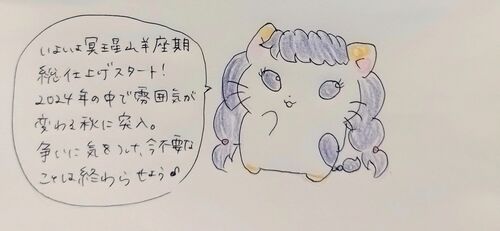 いよいよ冥王星山羊座期
総仕上げスタート!
2024年の中で雰囲気が
変わる秋に突入。
争いに気をつけ、今不要な
ことは終わらせよう♪